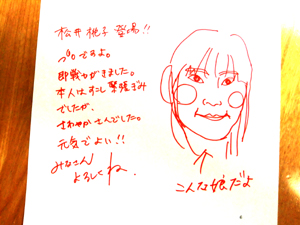 松井桃子登場!!
プロですよ。
即戦力がきました。
本人はすこし緊張ぎみ
でしたが、
さわやかさんでした。
元気でよい!!
みなさん
よろしくね。
こんな娘だよ